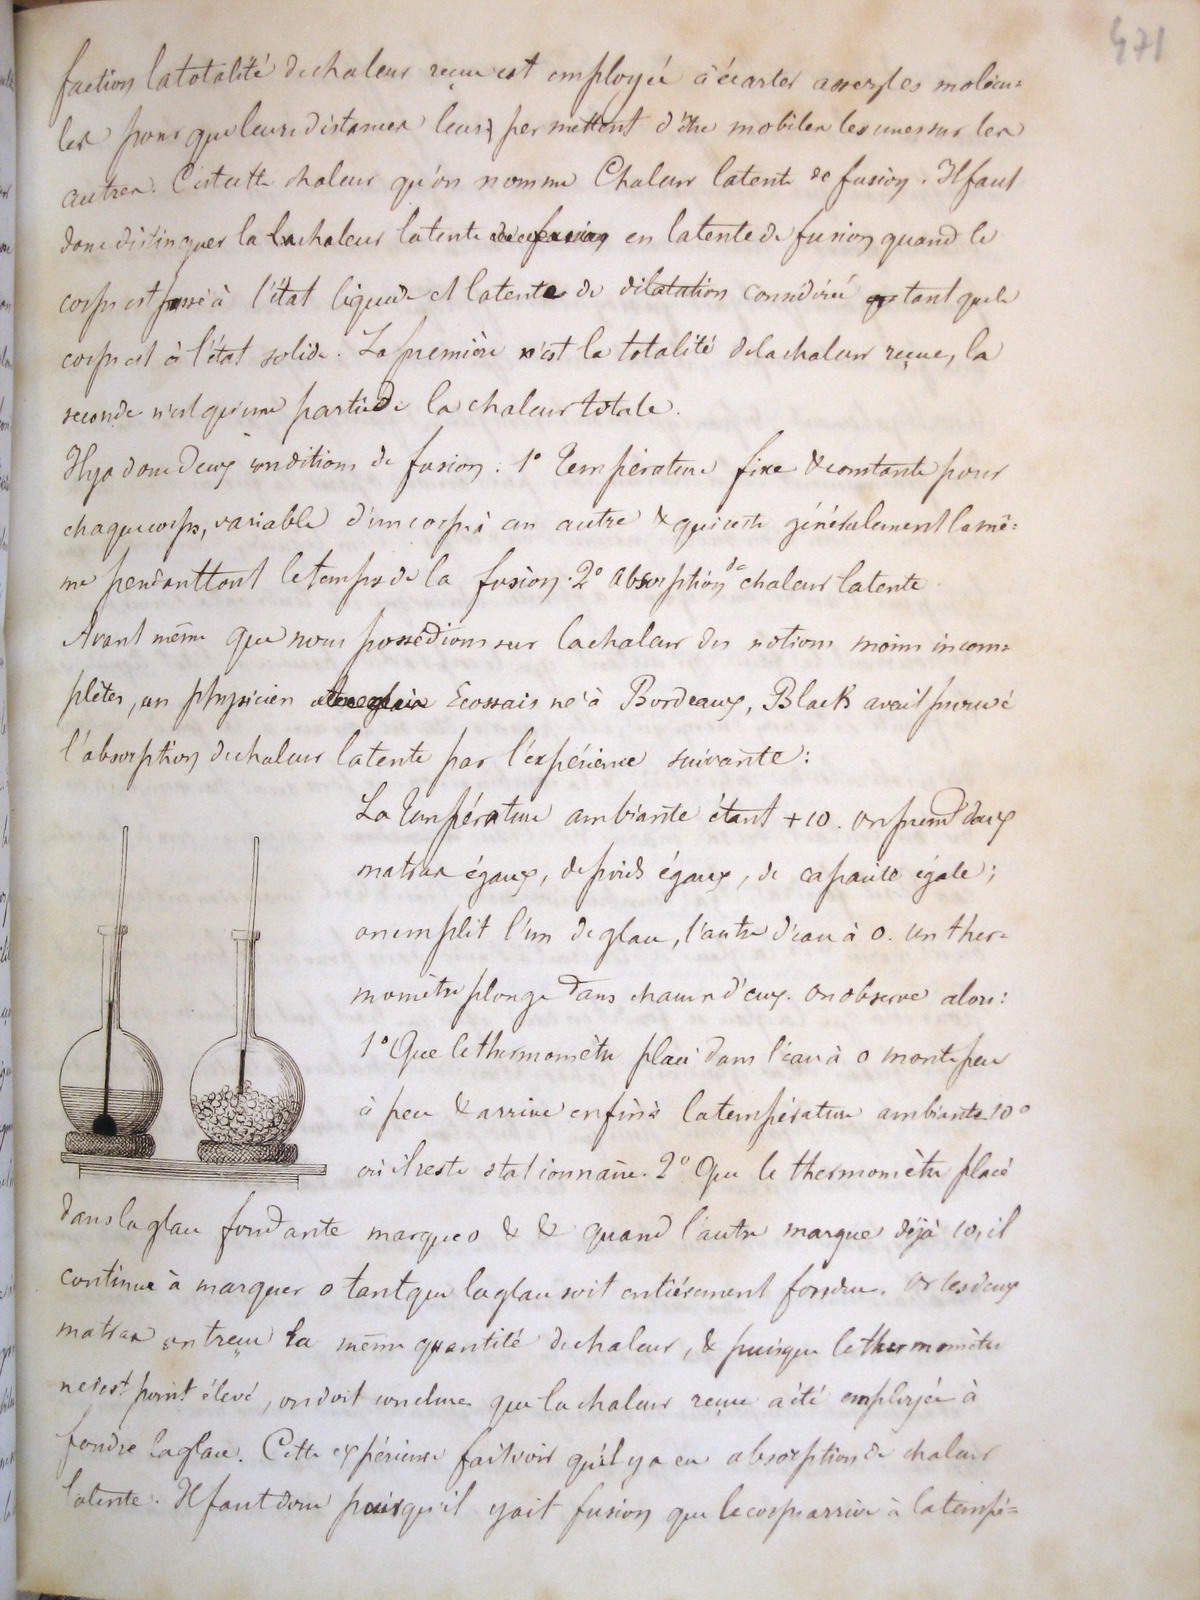 471
faction la totalité de chaleur reçue est employée à écarter assez les molécu=
les pour que leurs distances leurs permettent d'être mobiles les unes sur les
autres. C'est cette chaleur qu'on nomme Chaleur latente de fusion. Il faut
donc distinguer la chaleur latente en latente de fusion quand le
corps est passé à l'état liquide et latente de dilatation considérée tant que le
corps est à l'état solide. La première c'est la totalité de la chaleur reçue, la
seconde n'est qu'une partie de la chaleur totale.
Il y a donc deux conditions de fusion : 1° Température fixe & constante pour
chaque corps, variable d'un corps à un autre & qui reste généralement la mê=
me pendant tout le temps de la fusion. 2° absorption de chaleur latente
Avant même que nous possédions sur la chaleur des notions moins incom=
plètes, un physicien Ecossais né à Bordeaux, Black avait prouvé
l'absorption de chaleur latente par l'expérience suivante :
La Température ambiante étant +10. on prend deux
matras égaux, de poids égaux, de capacité égale ;
on emplit l'un de glace, l'autre d'eau à 0. un ther=
momètre plonge dans chacun d'eux. on observe alors :
1° Que le thermomètre placé dans l'eau à 0 monte peu
à peu & arrive enfin à la température ambiante 10°
où il reste stationnaire. 2° Que le thermomètre placé
dans la glace fondante marque 0 & & quand l'autre marque déjà 10, il
continue à marquer 0 tant que la glace soit entièrement fondue. Or les deux
matras ont reçu la même quantité de chaleur, & puisque le thermomètre
ne s'est point élevé, on doit conclure que la chaleur reçue a été employée à
fondre la glace. Cette expérience fait voir qu'il y a eu absorption de chaleur
latente. Il faut donc puisqu'il y ait fusion que le corps arrive à la tempé=